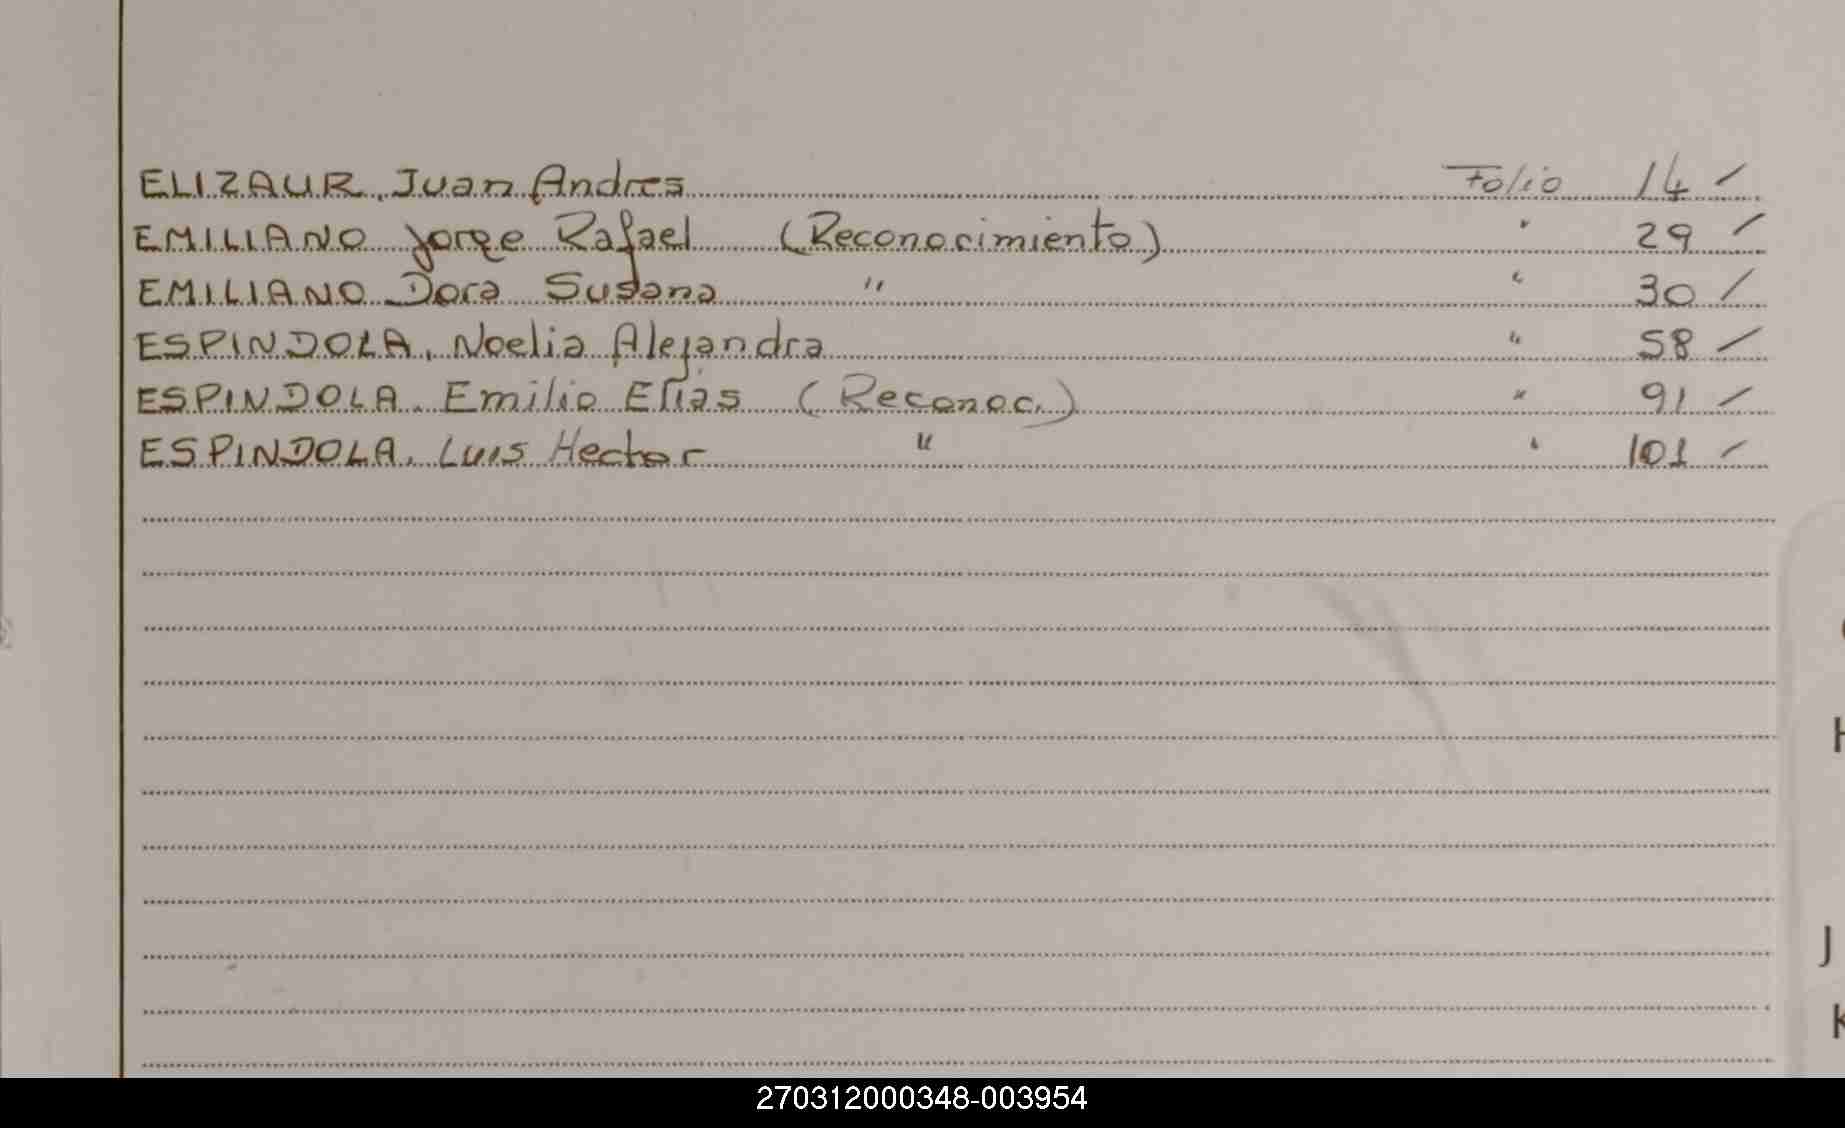 ELIZAUR, Juan Andres Folio 14 /
EMILIANO Jorge Rafael (Reconocimiento) " 29 /
EMILIANO Dora Susana " " 30 /
ESPINDOLA, Noelia Alejandra " 58 /
ESPINDOLA, Emilio Elias (Reconoc.) " 91 /
ESPINDOLA, Luis Hector " " 101 /
H
J
K
270312000348-003954